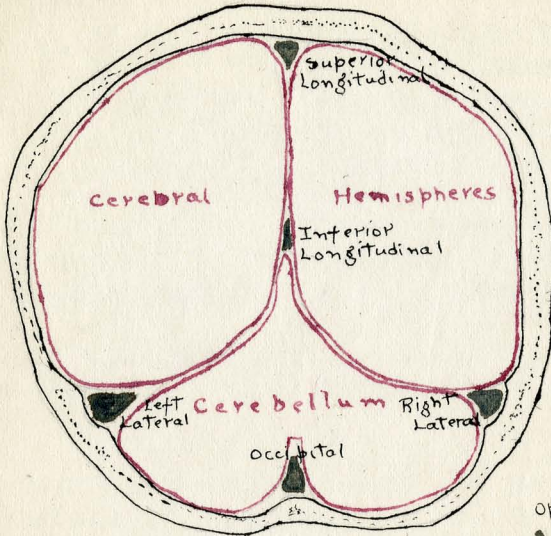 Superior
Longitudinal
Cerebral
Hemispheres
Inferior
Longitudinal
Left
Lateral
Cerebellum
Right
Lateral
Occipital